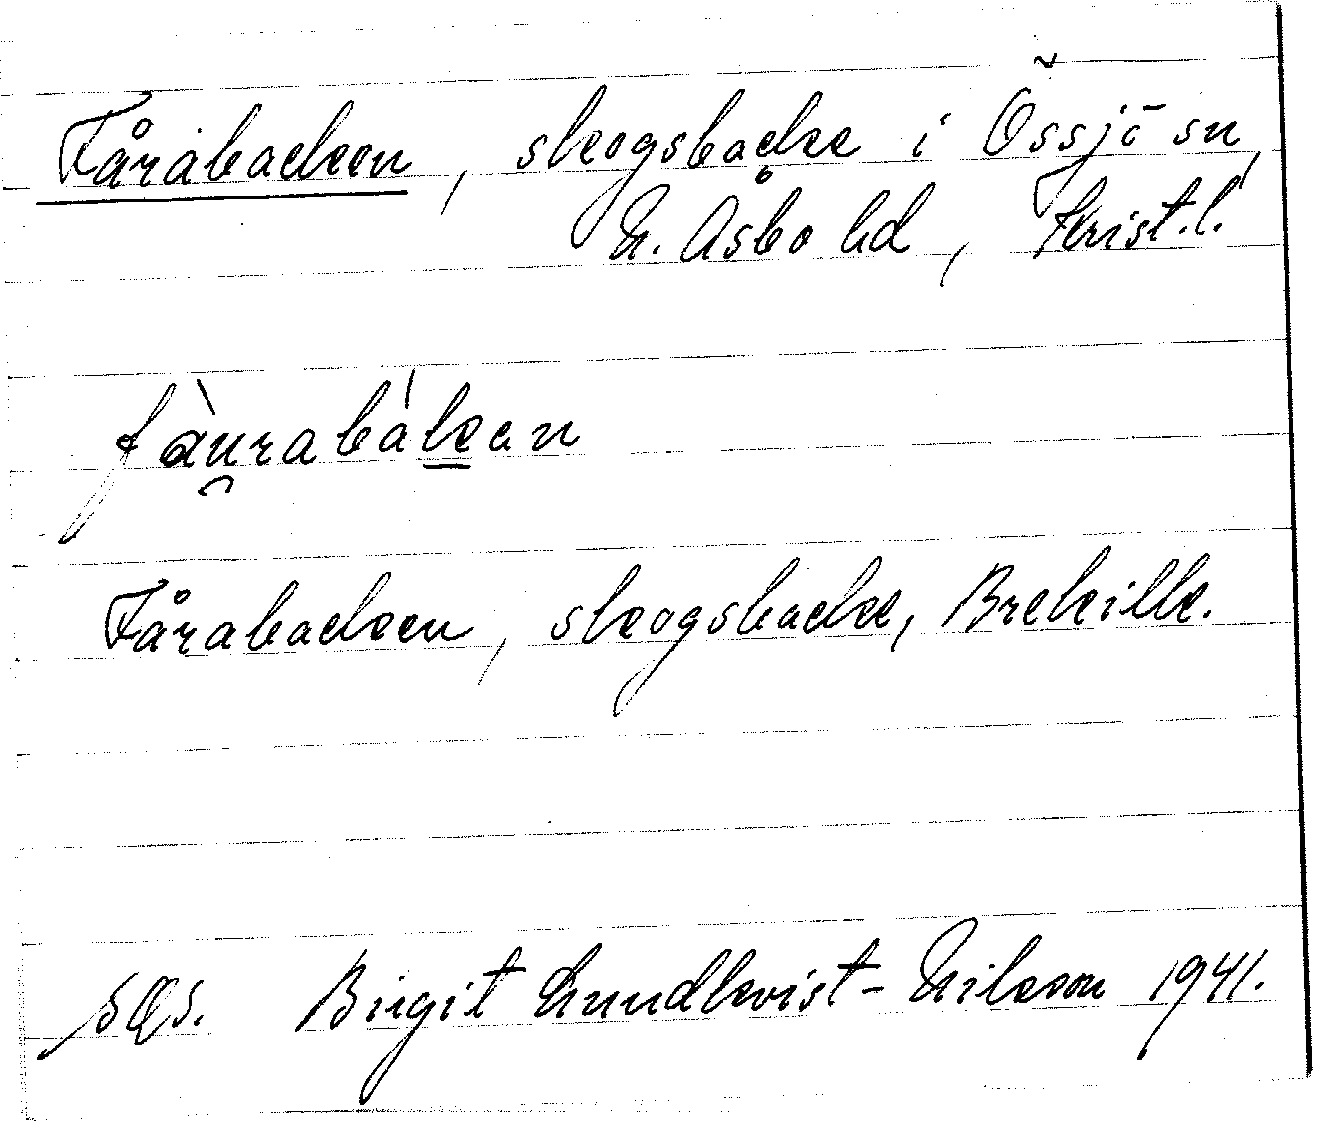 Fårabacken, skogsbacke i Össjö sn,
N. Åsbo hd, Krist.l.
fàu̯rabák̲an
Fårabacken, skogsbacke, Brekille.
Birgit Lundkvist-Nilsson 1941.